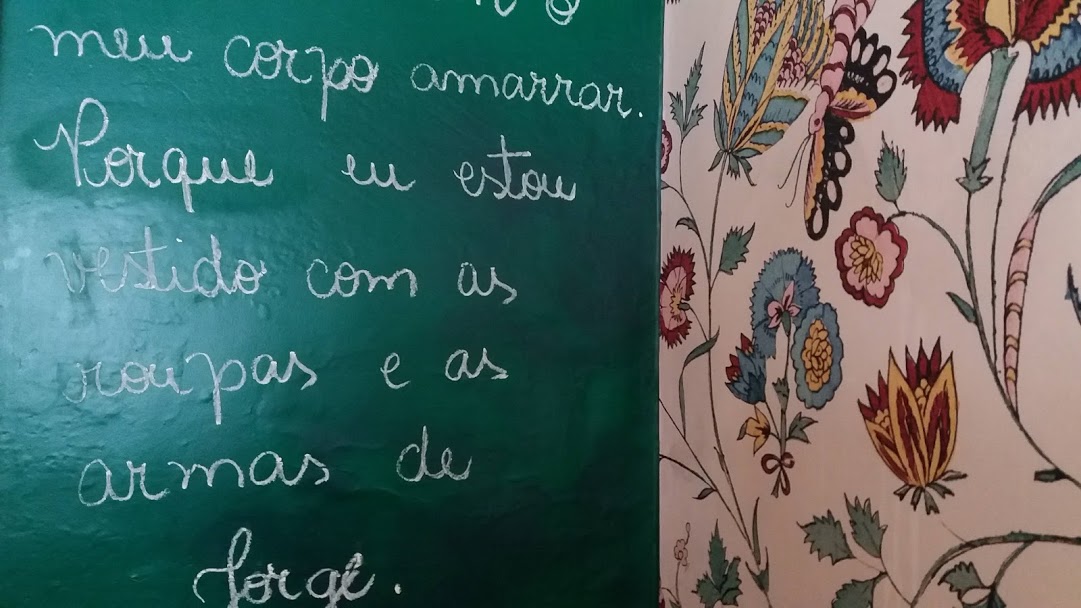 meu corpo amarrar.
Porque eu estou
vestido com as
roupas e as
armas de
Jorge.